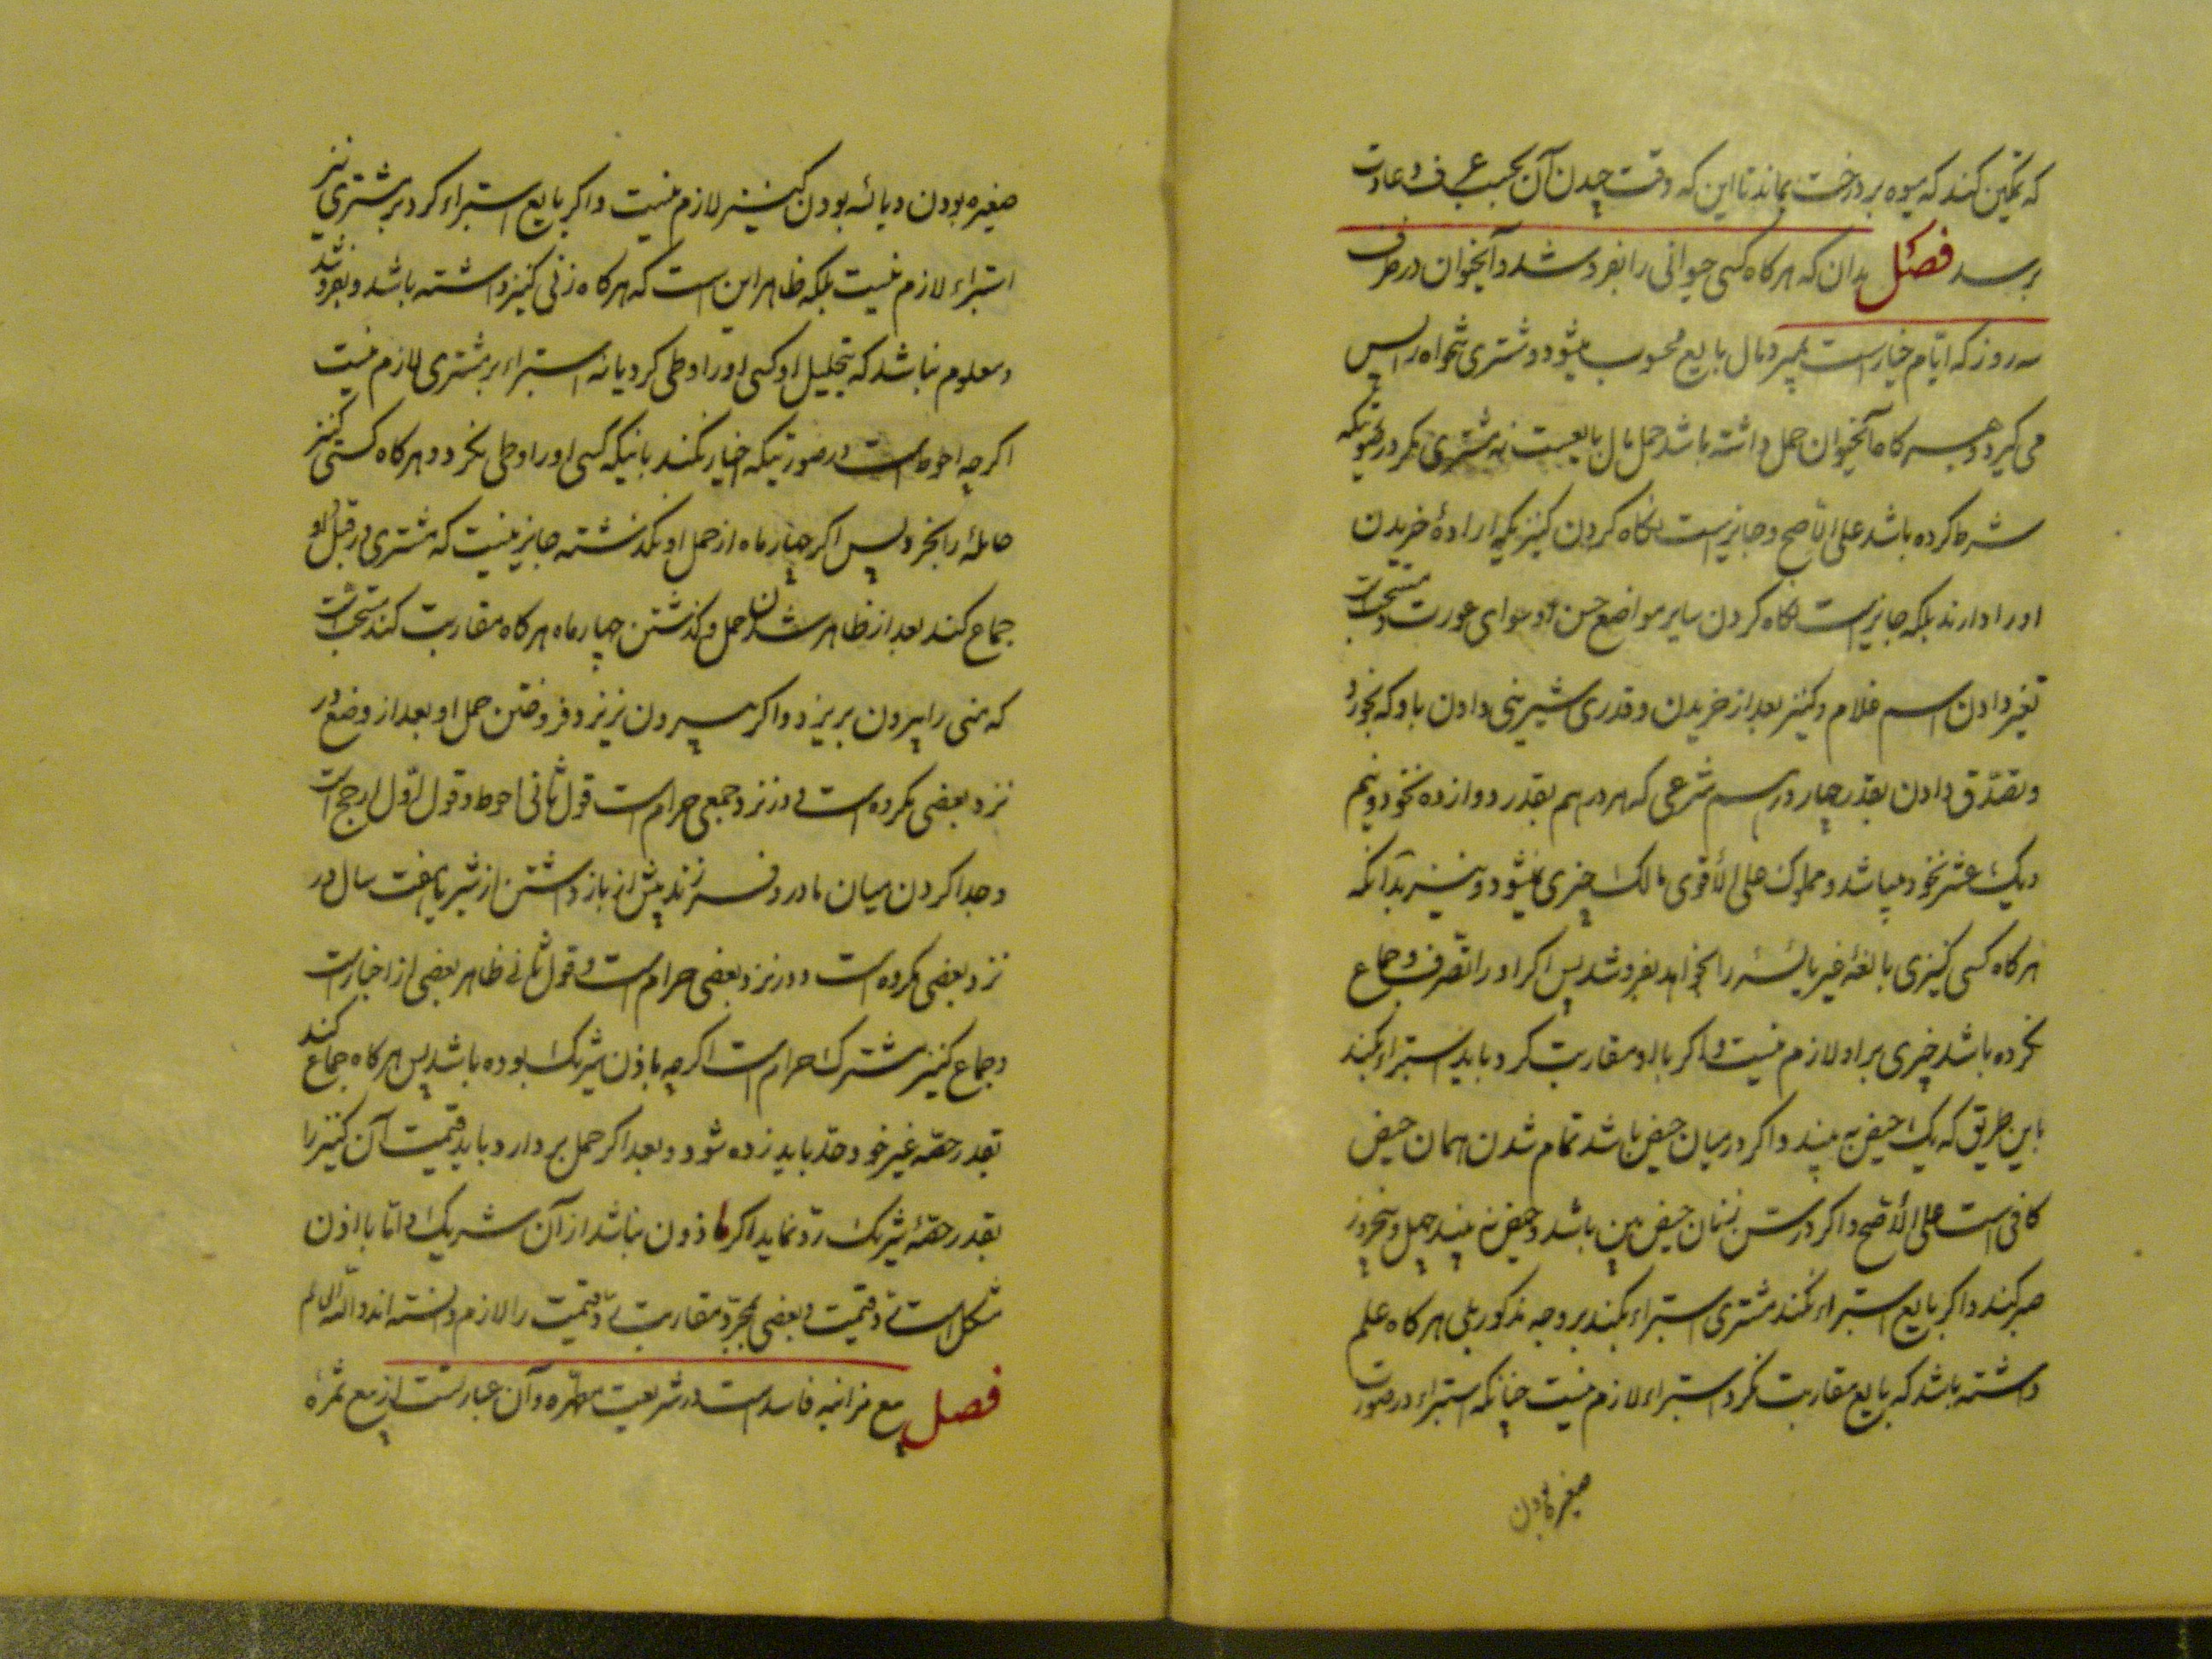 که تمکین کند که میوه بر درخت بماند تا این که وقت چیدن آن بحسب عرف و عادت
برسد فصل بدان که هرکاه کسی حیوانی را بفروشد و آنحیوان در عرض
سه روز که ایّام خیار است بمیرد مال بایع محسوب میشود و مشتری تنخواه را پس
می کیرد و هرکاه آنحیوان حمل داشته باشد حمل مال بایعست نه مشتری مکر در صورتیکه
شرط کرده باشد علی الأصح و جایز است نکاه کردن کنیز بکه ارادهٔ خریدن
اورا دارند بلکه جایز است نکاه کردن سایر مواضع حسن او سوای عورت و مستحب است
تغیر دادن اسم غلام و کنیز بعد از خریدن و قدری شیرینی دادن باو که بخورد
و تصدّق دادن بقدر چهار درهم شرعی که هر درهم بقدر دوازده نخود و نیم
و یک عشر نخود میباشد و مملوک علی الأقوی مالک چیزی نمیشود و نیز بدآنکه
هرکاه کسی کنیزی بالغهٔ غیر یائسه را بخواهد بفروشد پس اکر اورا تصّرف و جماع
نکرده باشد چیزی بر او لازم نیست و اکر با او مقاربت کرد باید استبراء بکند
باین طریق که یک حیض به بیند و اکر در میان حیض باشد تمام شدن همان حیض
کافی است علی الأصح و اکر در سن زنان حیض بین باشد و حیض نه بیند چهل و پنجروز
صبر کند و اکر بایع استبراء نکند مشتری استبراء بکند بر وجه مذکور بلی هرکاه علم
داشته باشد که بایع مقاربت نکرد استبراء لازم نیست چنانکه استبراء در صورت
صغیره بودن
صغیره بودن و یائسه بودن کنیز لازم نیست و اکر بایع استبراء کرد بر مشتری نیز
استبراء لازم نیست بلکه ظاهر این است که هرکاه زنی کنیز داشته باشد و بفروشد
و معلوم نباشد که بتحلیل او کسی اورا وطی کرد یا نه استبراء بر مشتری لازم نیست
اکر چه احوط است در صورتیکه اخبار نکند باینکه کسی اورا وطی نکرد و هرکاه کسی کنیز
حاملهٔ را بخرد پس اکر چهار ماه از حمل او نکذشته جایز نیست که مشتری در قبل او
جماع کند بعد از ظاهر شدن حمل و کذشتن چهار ماه هرکاه مقاربت کند مستحب است
که منی را بیرون بریزد و اکر بیرون نریزد فروختن حمل او بعد از وضع در
نزد بعضی مکروه است و در نزد جمعی حرام است قول ثانی احوط و قول اوّل ارجح است
و جدا کردن میان مادر و فرزند پیش از باز داشتن از شیر یا هفت سال در
نزد بعضی مکروه است و در نزد بعضی حرام است و قول ثانی ظاهر بعضی از اخبار است
و جماع کنیز مشترک حرام است اکر چه باذن شریک بوده باشد پس هرکاه جماع کند
بقدر حصّه غیر خود حدّ باید زده شود و بعد اکر حمل بردارد باید قیمت آن کنیز را
بقدر حصّهٔ شریک ردّ نماید اکر ماذون نباشد از آن شریک و امّا با اذن
مشکل است قیمت و بعضی بمجرّد مقاربت قیمت را لازم دانسته اند والله العالم
فصل بیع مزابنه فاسد است در شریعت مطهّره و آن عبارتست از بیع ثمرهٔ